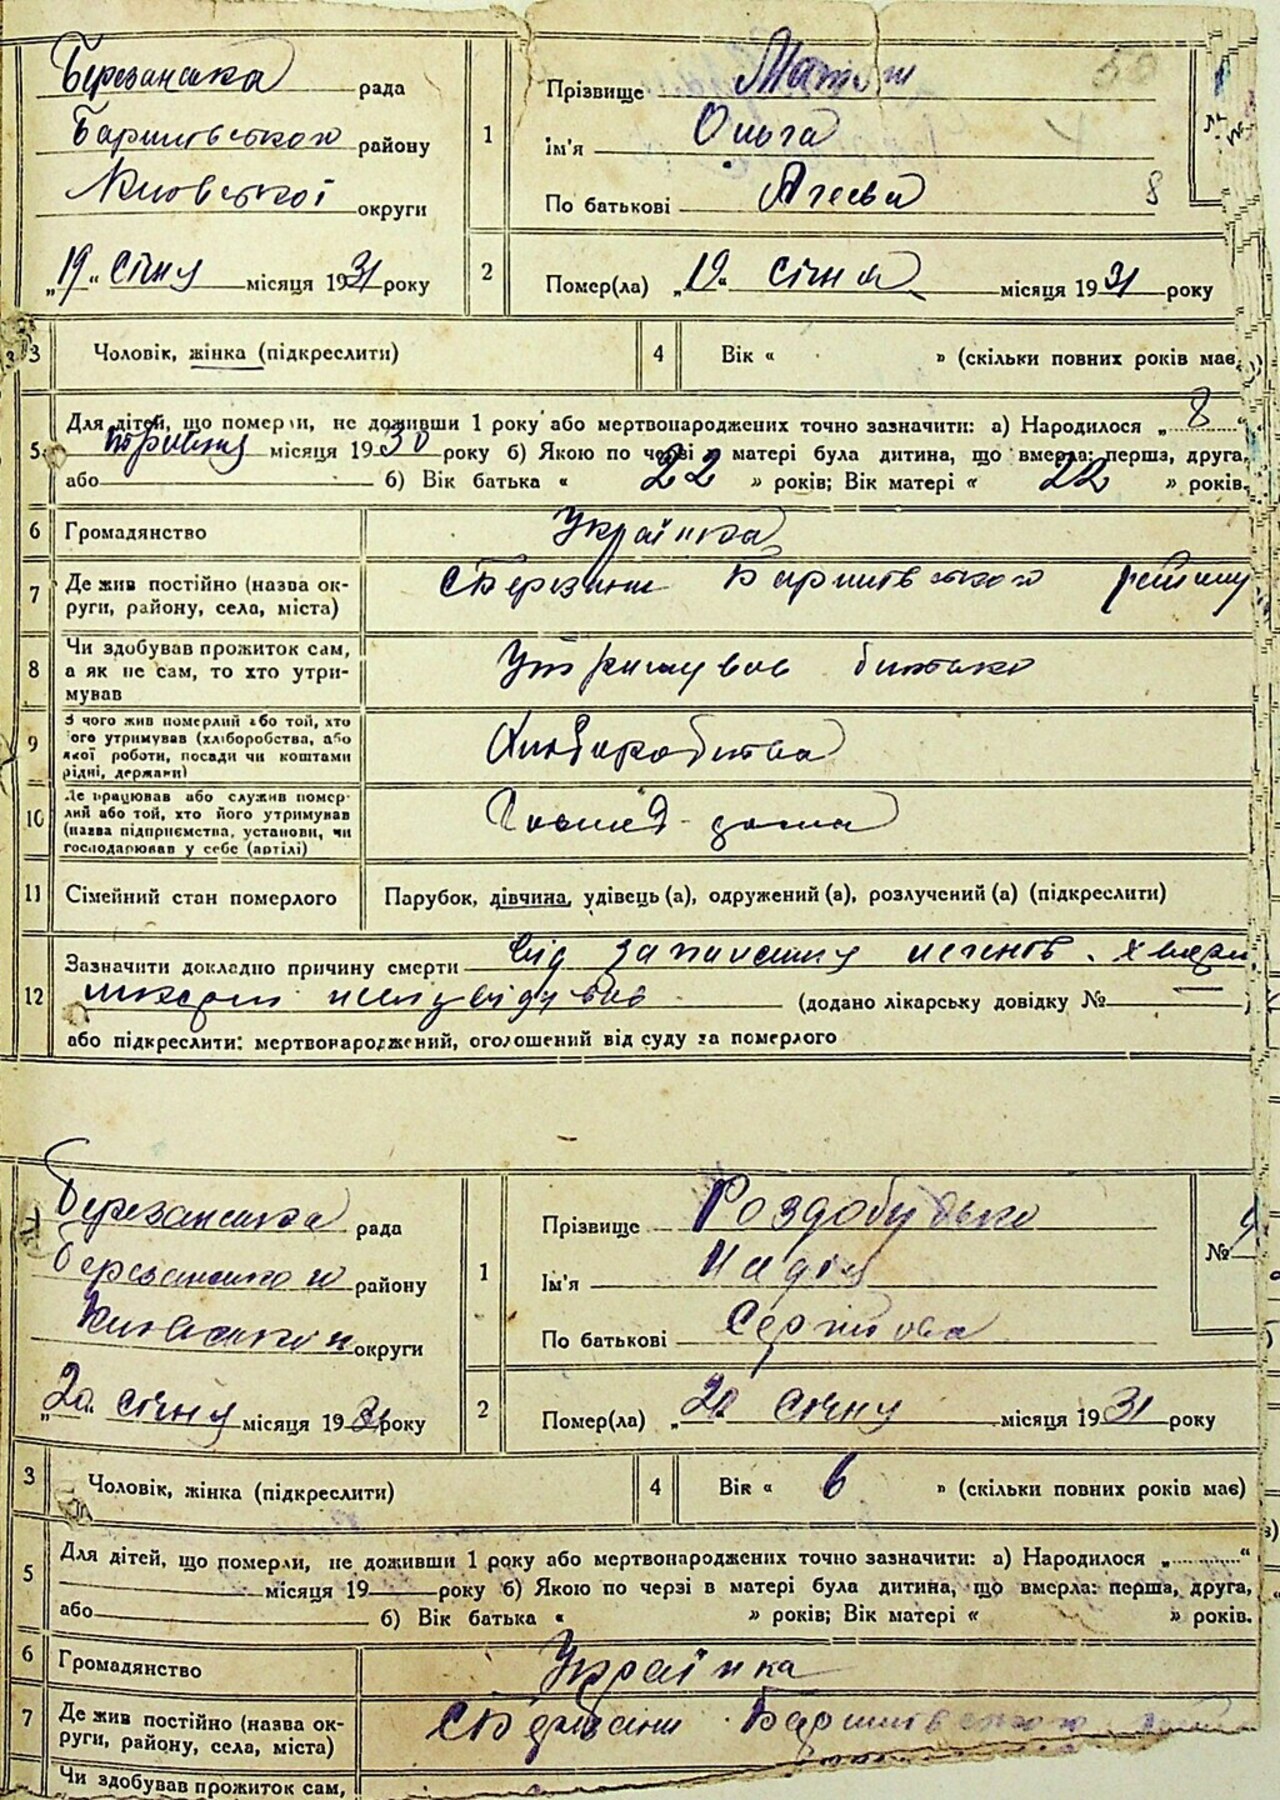 Березанська рада
Баришівського району
Київської округи
„19“ січня місяця 1931 року
1
Прізвище
Ім'я Ольга
По батькові
8
2
Помер(ла) „19“ січня місяця 1931 року
3 Чоловік, жінка (підкреслити)
4 Вік « » (скільки повних років має)
5
Для дітей, що померли, не доживши 1 року або мертвонароджених точно зазначити: а) Народилося „8“
місяця 1930 року б) Якою по черзі в матері була дитина, що вмерла: перша, друга,
або б) Вік батька « 22 » років; Вік матері « 22 » років.
6 Громадянство Українка
7
Де жив постійно (назва ок-
руги, району, села, міста)
с Березань Баришівського району
8
Чи здобував прожиток сам,
а як не сам, то хто утри-
мував
Утримував батько
9
З чого жив померлий або той, хто
його утримував (хліборобства, або
якої роботи, посади чи коштами
рідні, держави)
Хліборобства
10
Де працював або служив помер-
лий або той, хто його утримував
(назва підприємства, установи, чи
господарював у себе (артілі)
дома
11 Сімейний стан померлого Парубок, дівчина, удівець (а), одружений (а), розлучений (а) (підкреслити)
12
Зазначити докладно причину смерти від запалення легенів.
(додано лікарську довідку № — )
або підкреслити: мертвонароджений, оголошений від суду за померлого
Березанська рада
району
округи
„20“ січня місяця 1931 року
1
Прізвище Роздобудько
Ім'я Надія
По батькові Сергійовна
№
2
Помер(ла) „20 січня місяця 1931 року
3 Чоловік, жінка (підкреслити)
4 Вік « 6 » (скільки повних років має)
5
Для дітей, що померли, не доживши 1 року або мертвонароджених точно зазначити: а) Народилося „ “
місяця 19 року б) Якою по черзі в матері була дитина, що вмерла: перша, друга,
або б) Вік батька « » років; Вік матері « » років.
6 Громадянство Українка
7
Де жив постійно (назва ок-
руги, району, села, міста)
с Березань Баришівського
Чи здобував прожиток сам,